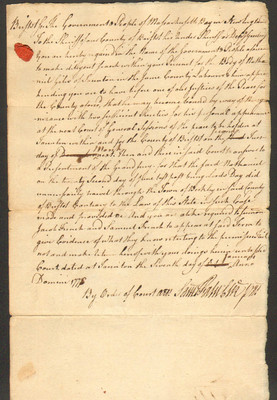 Bristol ss The Government & People of Massachusetts Bay in New England
To the Sheriff of said County of Bristol his Under Sheriff or Deputy Greeting
You are hereby required in the Name of the Government & People
to make diligent Search within your Precinct for the Body of Nathaniel
of Taunton in the said County & him to have appre
hending you are to have before one of the Justices of the Peace for
the County aforesd, that he may become bound by way of
with two sufficient Sureties for his personal appearance
at the next Court of general Sessions of the peace to be holden at
Taunton within and for the County of Bristol on the Second
day of March Next Then and there in said Court to answer to
a Presentment of the grand Jury, for that the said Nathaniel
on the twenty Second day of last past being Lords Day did
unnecessarily travel through the Town of Berkley in said County
of Bristol Contrary to the Law of this State in such Case
made and provided &c And you are also required to summon
Jacob French and Samuel French to appear at said Term to
give Evidence of what they know relating to the premises fail
not and make return herewith your doings herein unto said
Court dated at Taunton the Seventh day of January Anno
Domini 1778
By Order of Court